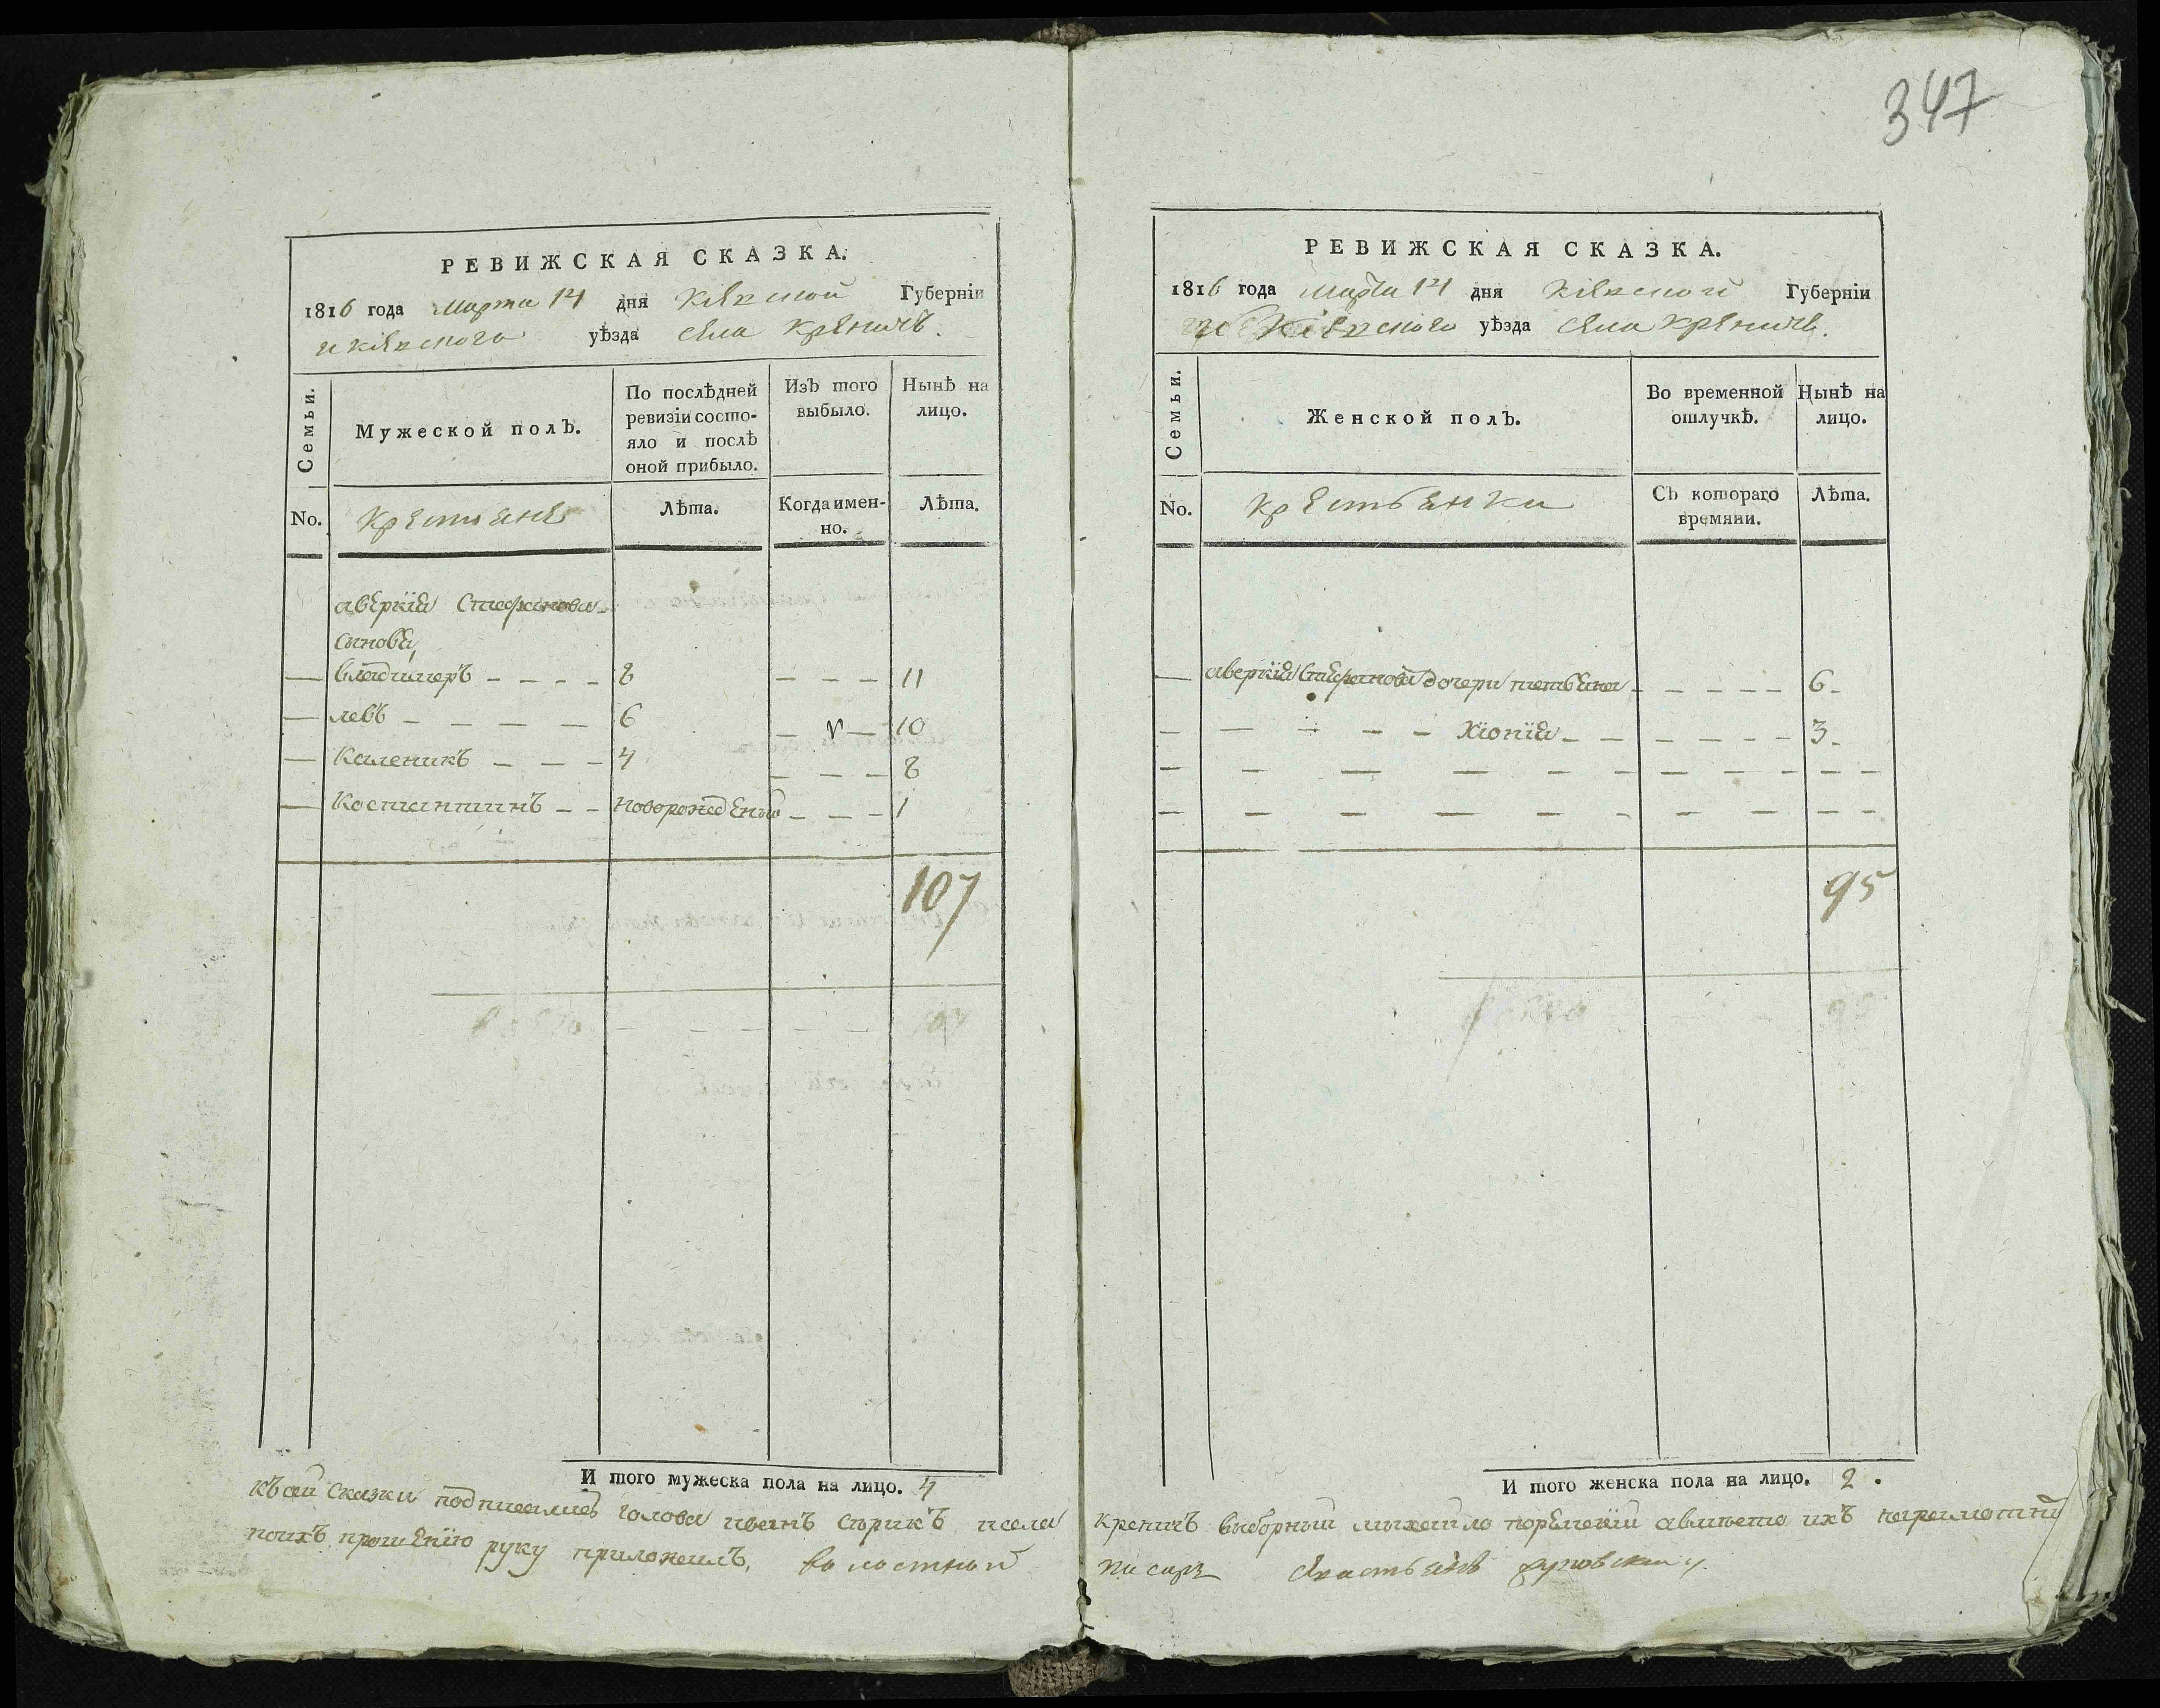 347
РЕВИЖСКАЯ СКАЗКА.
1816 года марта 14 дня Кіевской Губерніи
и кіевского уѣзда села Креничъ.
Семьи.
Мужеской полъ.
По послѣдней ревизіи состояло и послѣ оной прибыло.
Изъ того выбыло.
Нынѣ на лицо.
No.
Крестьяне
Лѣта.
Когда именно.
Лѣта.
аверкия Стефанова
синови
владимеръ - - - - 8 - - - 11
левъ - - - - 6 - - 10
Каленикъ - - - 4 - - - 8
Костантинъ - - новорожденый - - - 1
107
И того мужеска пола на лицо. 4
РЕВИЖСКАЯ СКАЗКА.
1816 года марта 14 дня Кіевской Губерніи
Кіевского уѣзда села Креничъ.
Семьи.
Женской полъ.
Во временной отлучкѣ.
Нынѣ на лицо.
No.
крестьянки
Съ котораго времяни.
Лѣта.
аверкия Стефанова дочери татьяна - - - - - 6 -
- - - - - Хіонія - - - - - - 3 -
95
И того женска пола на лицо. 2.
сказки голова иванъ Сърикъ исела Креничъ выборный михайло ихъ
поихъ прошению руку приложилъ, волостный писарь